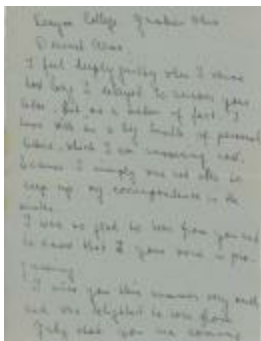 Kenyon College Gambier Ohio
Dearest
I feel deeply guilty when I think
how long I delayed to answer your
letter. But as a matter of fact, I
have still a big bundle of personal
letters which I am answering now,
because I simply was not able to
keep up my correspondence in the
I was so glad to hear from you and
to know that your work is pro-
gressing
I miss you this summer very much
and was delighted to hear from
July that you are coming